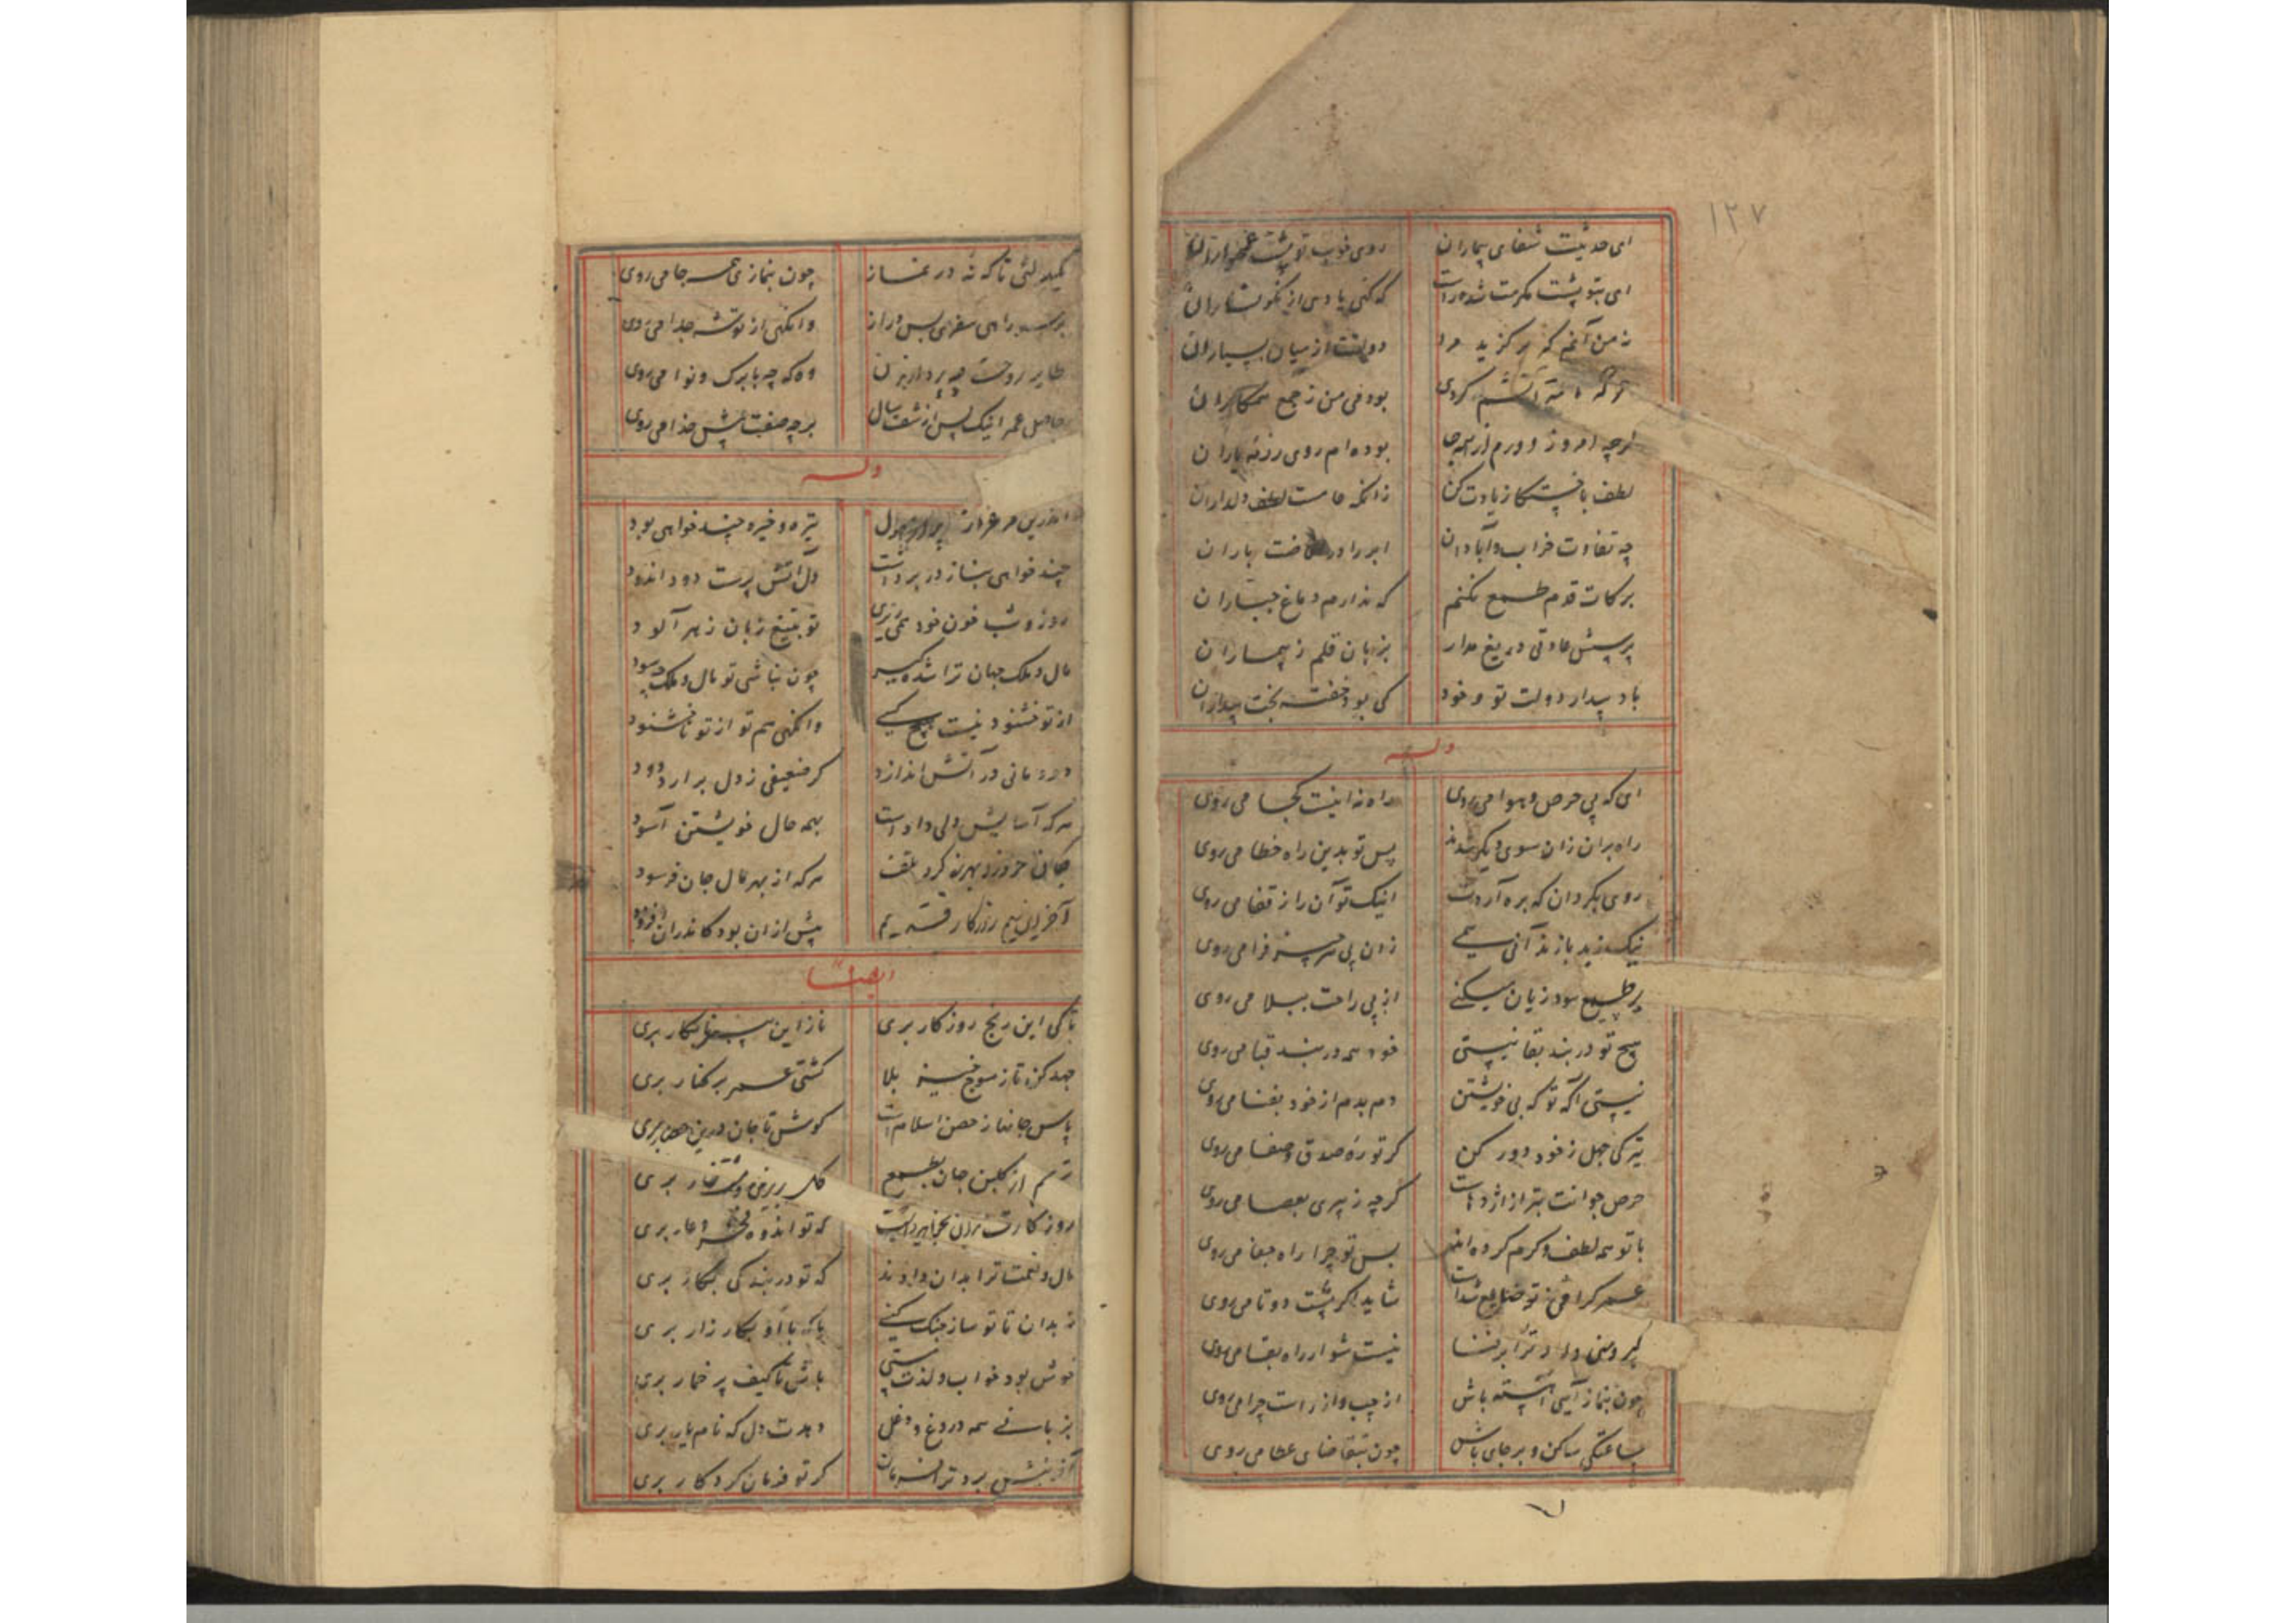 ۱۲۷
ای حدیثت شفای بیماران روی خوب تو پشت
ای بتو پشت مکرمت شده راست که کنی یاد من از نکوساران
نه من آنم که بر کزید مرا دولت از میان بسیاران
بود می من ز جمع همکاران
کرچه امروز دورم از همه جا بوده ام روی رزمه یاران
لطف با خستکان زیادت کن زانکه عامست لطف دلداران
چه تفاوت خراب و آبادان ابر را در باران
بر کات قوم طمع نکنم که ندارم دماغ جباران
پرسش عادتی دریغ مدار بزبان قلم ز بیماران
باد بیدار دولت تو و خود کی بود خفته بخت بیداران
وله
ای که پی حرص و هوا می روی راه نه اینست کجا می روی
راه بران زان سوی دیکر شدند پس تو بدین راه خطا می روی
روی بکردان که بره آردت اینک تو آن را ز قفا می روی
نیک ز بد باز ندانی همی زان پی هر چیز فرا می روی
بر طمع سود زیان میکنی از پی راحت ببلا می روی
هیچ تو در بند بقا نیستی خود همه در بند قبا می روی
نیستی آکه تو که بی خویشتن دم بدم از خود بفنا می روی
تیرکی جهل ز خود دور کن کر تو ره صدق و صفا می روی
حرص جوانت بتر از اژدهاست کرچه ز پیری بعصا می روی
با تو همه لطف و کرم کرده اند پس تو چرا راه جفا می روی
عمر کرامی ز تو ضایع شداست شاید اکر پشت دوتا می روی
کبر و منی داد ترا بر فنا نیست شو ار راه بقا می روی
چون بنماز آیی آهسته باش از چپ و از راست چرا می روی
ساعتکی ساکن و بر جای باش چون بتقاضای عطا می روی
یکدلئی تا که نه در نماز چون بنمازی همه جا می روی
بر سر راهی سفری بس دراز وانکهی از توشه جدا می روی
طایر روحت چه پرد از بدن وه که چه بابرک و نوا می روی
حاصل عمر اینک پس از شصت سال بر چه صفت پیش خدا می روی
وله
اندرین مرغزار پر از هول تیره و خیره چند خواهی بود
چند خواهی بناز در برداشت دل آتش پرست دود اندود
روز و شب خون خود همی ریزی تو بتیغ زبان زهر آلود
مال و ملک جهان ترا شده کیر چون نباشی تو مال و ملک چه سود
از تو خشنود نیست هیچ کسی وانکهی هم تو از تو ناخشنود
دودمانی در آتش اندازد کر ضعیفی ز دل برارد دود
هر که آسایش دلی دادست بهمه حال خویشتن آسود
هر که از بهر مال جان فرسود
پیش ازان بود کاندران افزود
ایضا
تا کی این رنج روزکار بری ناز این
جهد کن تا ز موج خیز بلا کشتی عمر بر کنار بری
پاس جانها ز حصن اسلامست کوش تا جان درین حصار بری
ترسم از کلبن جان بطمع کل بریزی و خار بری
که تو اندوه فخر و عار بری
مال و نعمت ترا بدان دادند که تو در بندکی بکار بری
نه بدان تا تو ساز جنک کنی یا که با او بکارزار بری
خوش بود خواب و لذت مستی باش تا کیف پر خمار بری
بزبانی همه دروغ و دغل دهدت دل که نام یار بری
آفرینش برد ترا فرمان کر تو فرمان کردکار بری